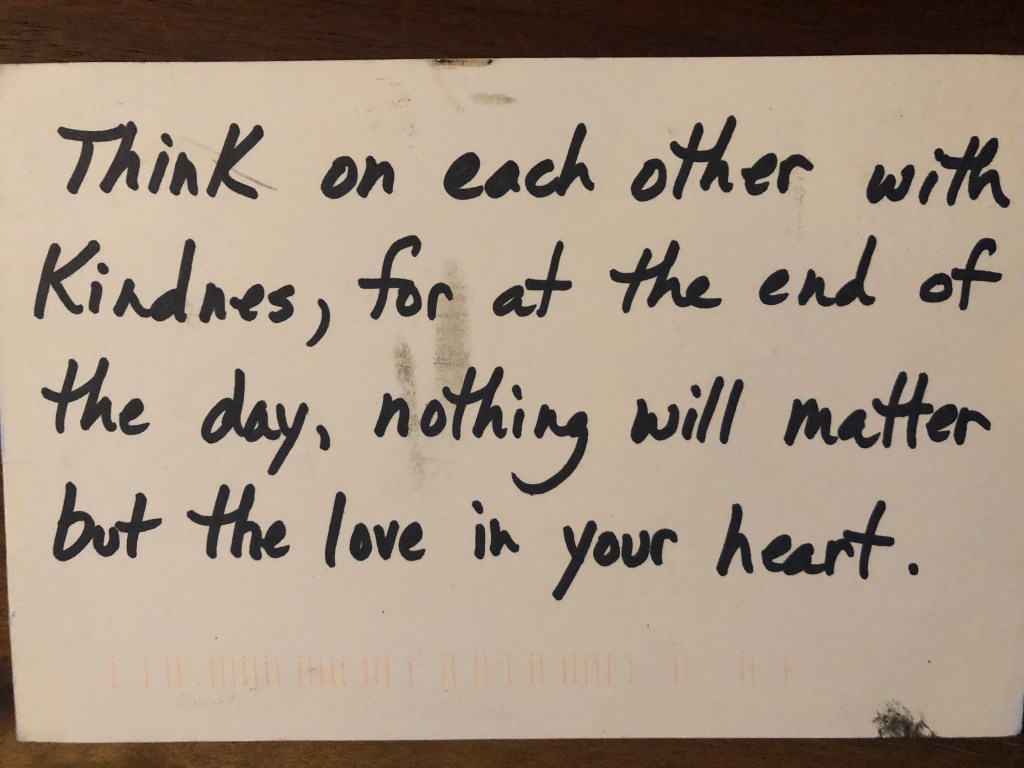 Think on each other with
Kindnes, for at the end of
the day, nothing will matter
but the love in your heart.